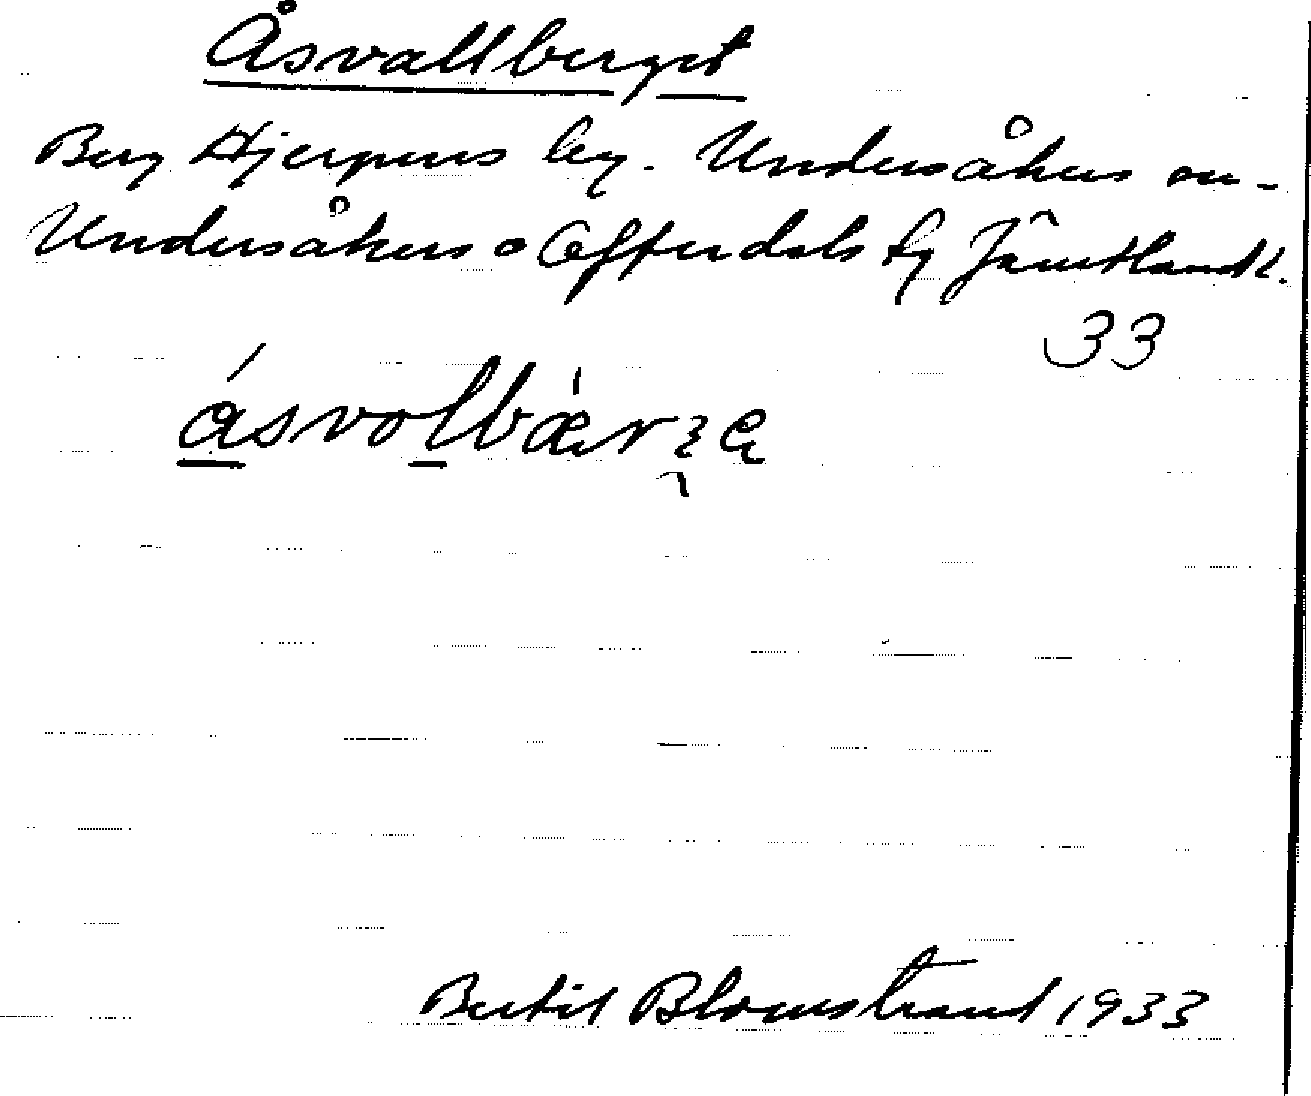 Åsvallberget
Berg Hjerpens by. Undersåkers sn -
Undersåkers o Offerdals tg Jämtland l.
33
ásvolbærʒe
Bertil Blomstrand 1933